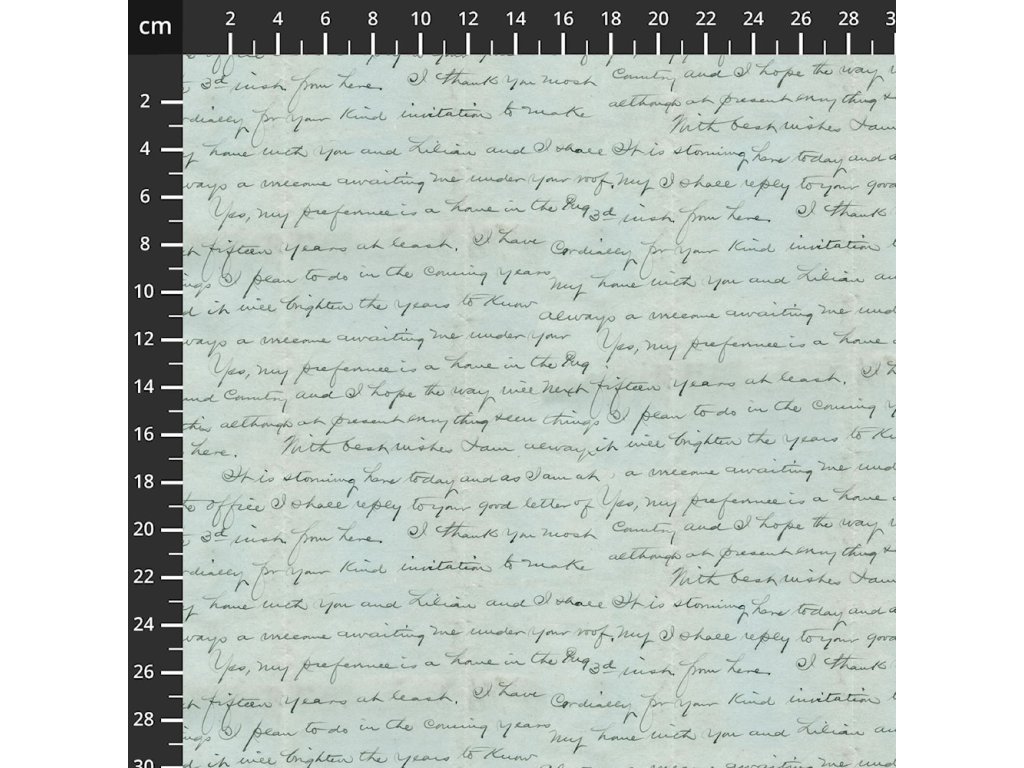 cm 2 4 6 8 10 12 14 16 18 20 22 24 26 28 3
office
3d inst from here. I thank you most Country and I hope the way
2 although at present everything
rdially for your kind invitation to make With best wishes I am
4 home with you and Lilian and I shall It is storming here today and a
ways a welcome awaiting me under your roof. My I shall reply to your good
6 Yes, my preference is a home in the 3d inst from here. I thank
8 fifteen years at least. I have Cordially for your kind invitation
ings I plan to do in the coming years My home with you and Lilian
10 d it will brighten the years to know always a welcome awaiting me und
12 ways a welcome awaiting me under your Yes, my preference is a home
Yes, my preference is a home in the
14 and Country and I hope the way will Next fifteen years at least. I h
this although at present everything seen things I plan to do in the coming y
16 here. With best wishes I am always it will brighten the years to kn
18 It is storming here today and as I am at a welcome awaiting me und
office I shall reply to your good letter of Yes, my preference is a home
20 3d inst from here. I thank you most Country and I hope the way
although at present everything
22 rdially for your kind invitation to make With best wishes I am
24 home with you and Lilian and I shall It is storming here today and a
ways a welcome awaiting me under your roof. My I shall reply to your good
26 Yes, my preference is a home in the 3d inst from here. I thank
28 fifteen years at least. I have Cordially for your kind invitation
ings I plan to do in the coming years My home with you and Lilian
30 d it will brighten the years to know always a welcome awaiting me und